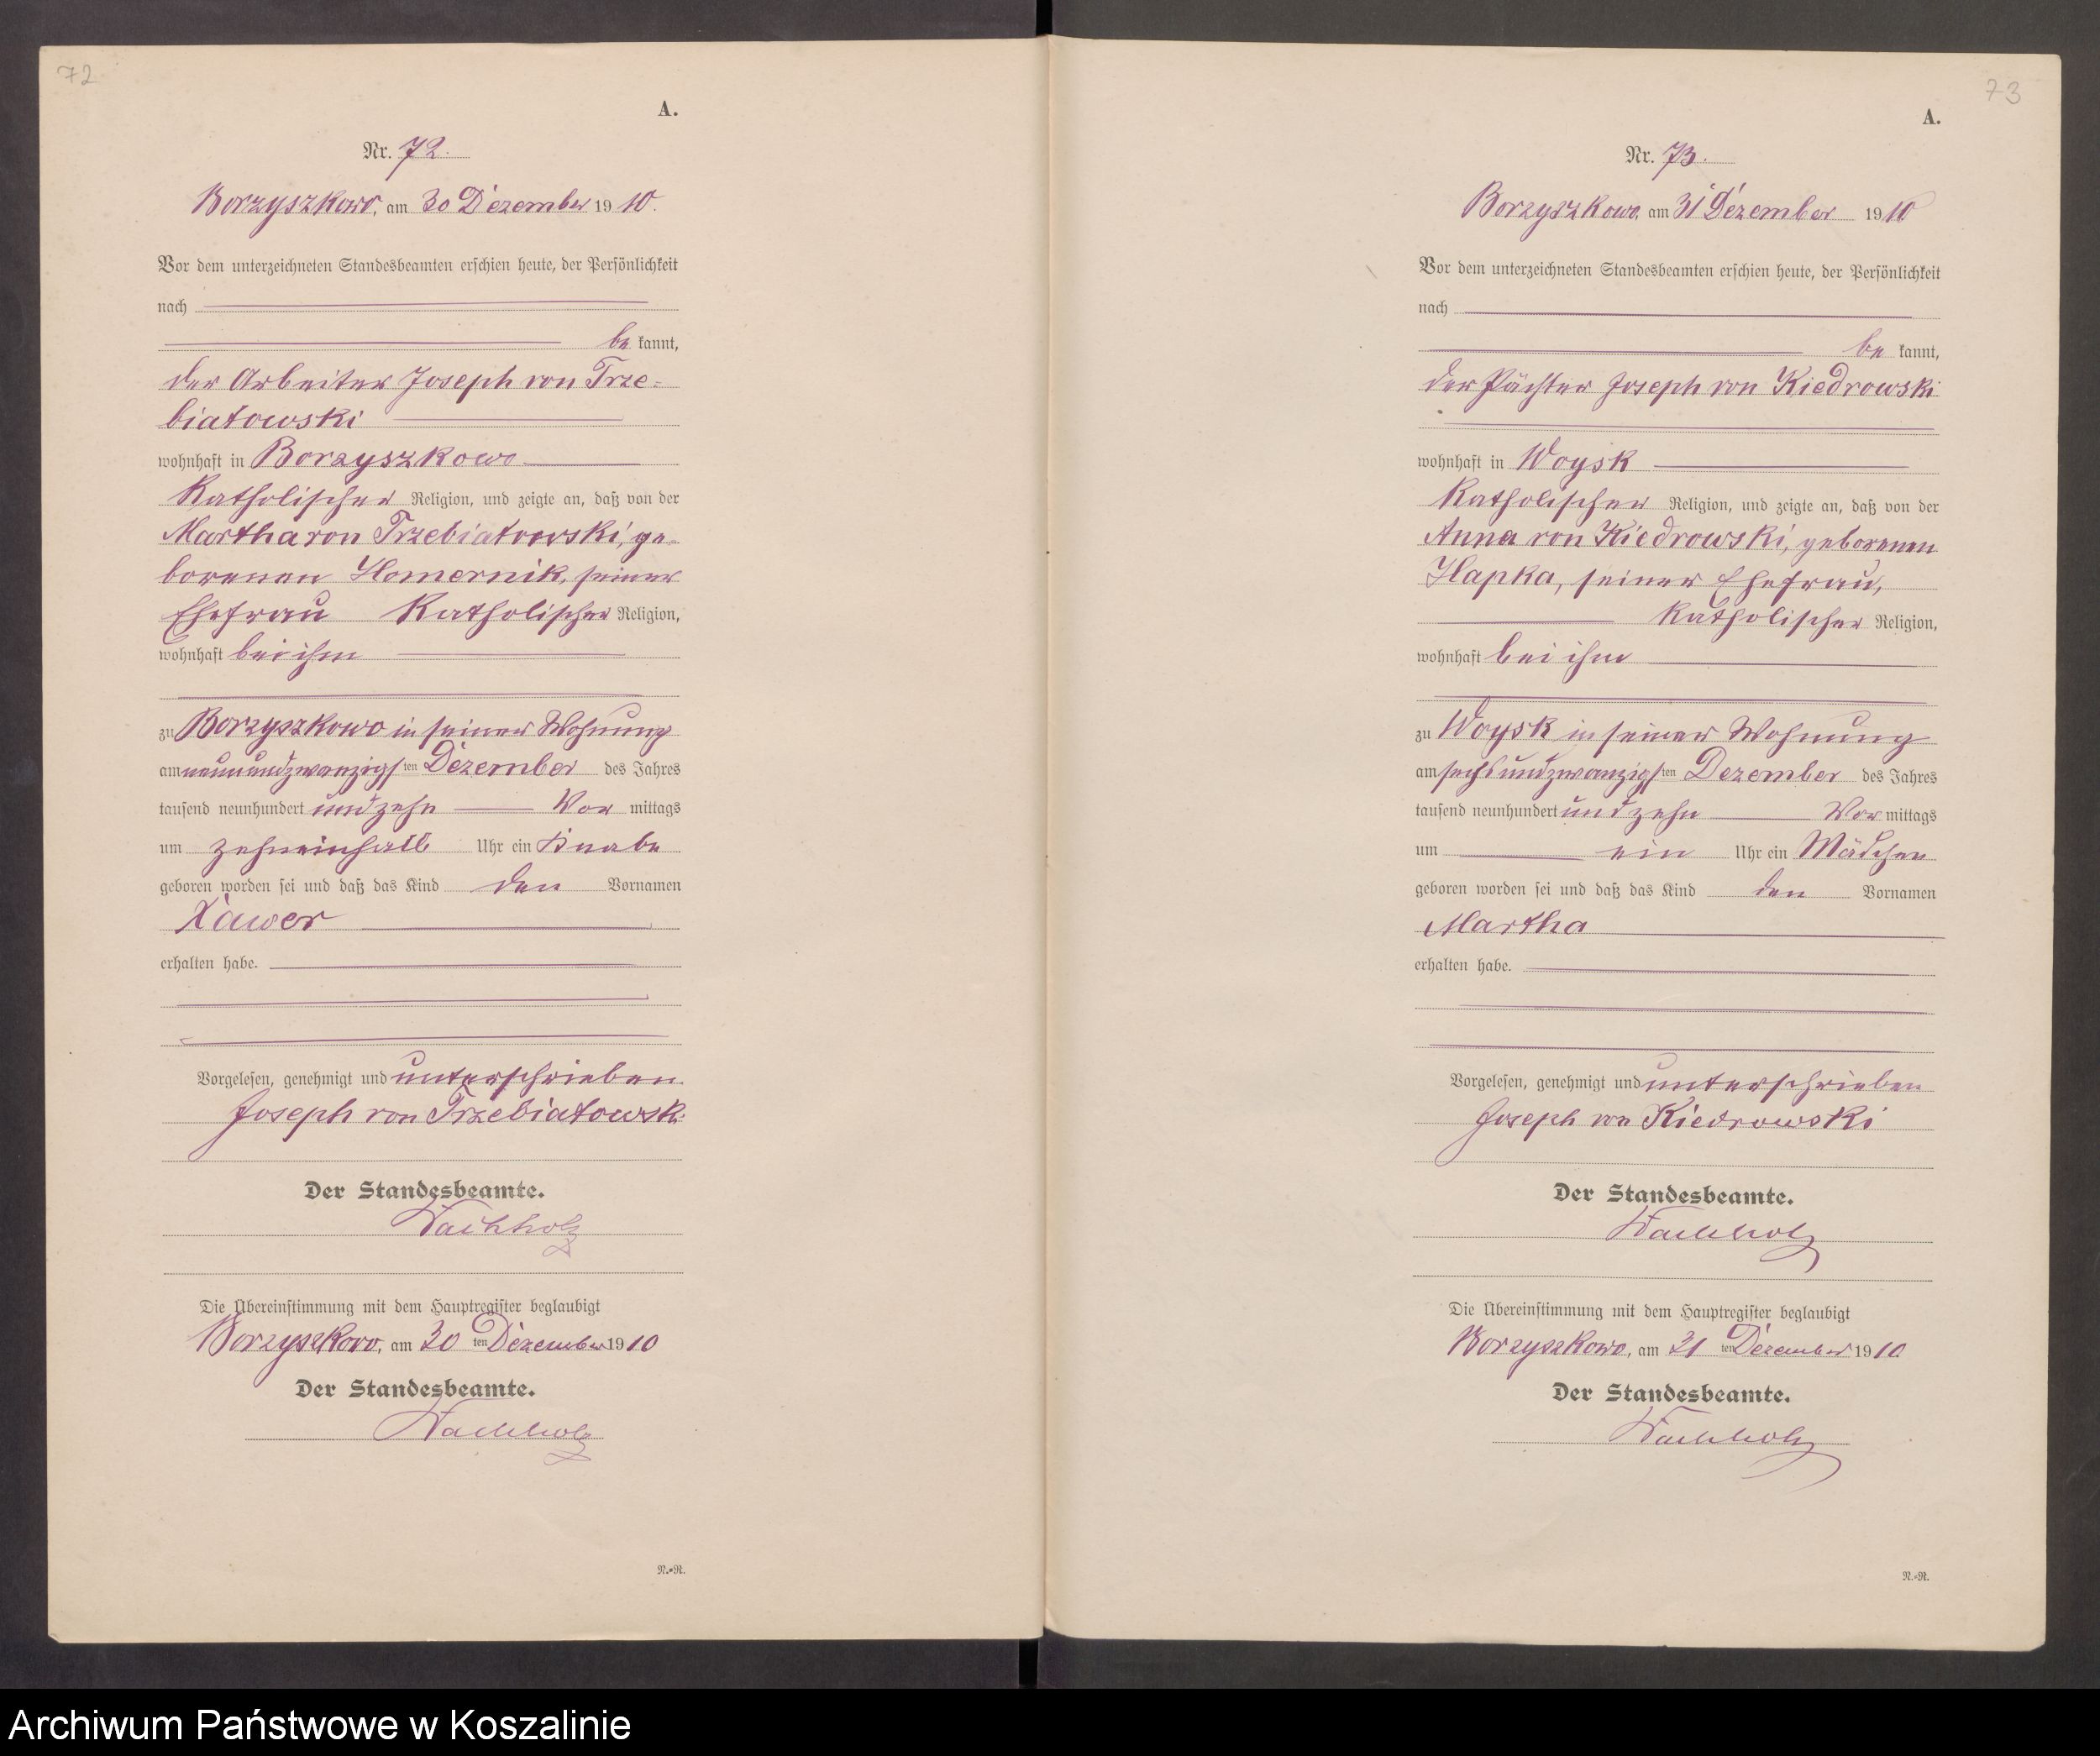 72
A.
Nr. 72.
Borzyszkowo, am 30 Dezember 1910.
Vor dem unterzeichneten Standesbeamten erschien heute, der Persönlichkeit
nach
be kannt,
der Arbeiter Joseph von Trze-
biatowski
wohnhaft in Borzyszkowo
katholischer Religion, und zeigte an, daß von der
Martha von Trzebiatowski, ge-
borenen Homernik, seiner
Ehefrau katholischer Religion,
wohnhaft bei ihm
zu Borzyszkowo in seiner Wohnung
am neunundzwanzigsten Dezember des Jahres
tausend neunhundert und zehn Vor mittags
um zehneinhalb Uhr ein Knabe
geboren worden sei und daß das Kind den Vornamen
Xawer
erhalten habe.
Vorgelesen, genehmigt und unterschrieben.
Joseph von Trzebiatowski
Der Standesbeamte.
Wachholz
Die Übereinstimmung mit dem Hauptregister beglaubigt
Borzyszkowo, am 30 ten Dezember 1910
Der Standesbeamte.
Wachholz
N.=N.
73
A.
Nr. 73.
Borzyszkowo am 31 Dezember 1910
Vor dem unterzeichneten Standesbeamten erschien heute, der Persönlichkeit
nach
be kannt,
der Pächter Joseph von Kiedrowski
wohnhaft in Woysk
katholischer Religion, und zeigte an, daß von der
Anna von Kiedrowski, geborenen
Hapka, seiner Ehefrau,
katholischer Religion,
wohnhaft bei ihm
zu Woysk in seiner Wohnung
am sechsundzwanzigsten Dezember des Jahres
tausend neunhundert und zehn Vor mittags
um ein Uhr ein Mädchen
geboren worden sei und daß das Kind den Vornamen
Martha
erhalten habe.
Vorgelesen, genehmigt und unterschrieben
Joseph von Kiedrowski
Der Standesbeamte.
Wachholz
Die Übereinstimmung mit dem Hauptregister beglaubigt
Borzyszkowo, am 31 ten Dezember 1910.
Der Standesbeamte.
Wachholz
N.=N.
Archiwum Państwowe w Koszalinie